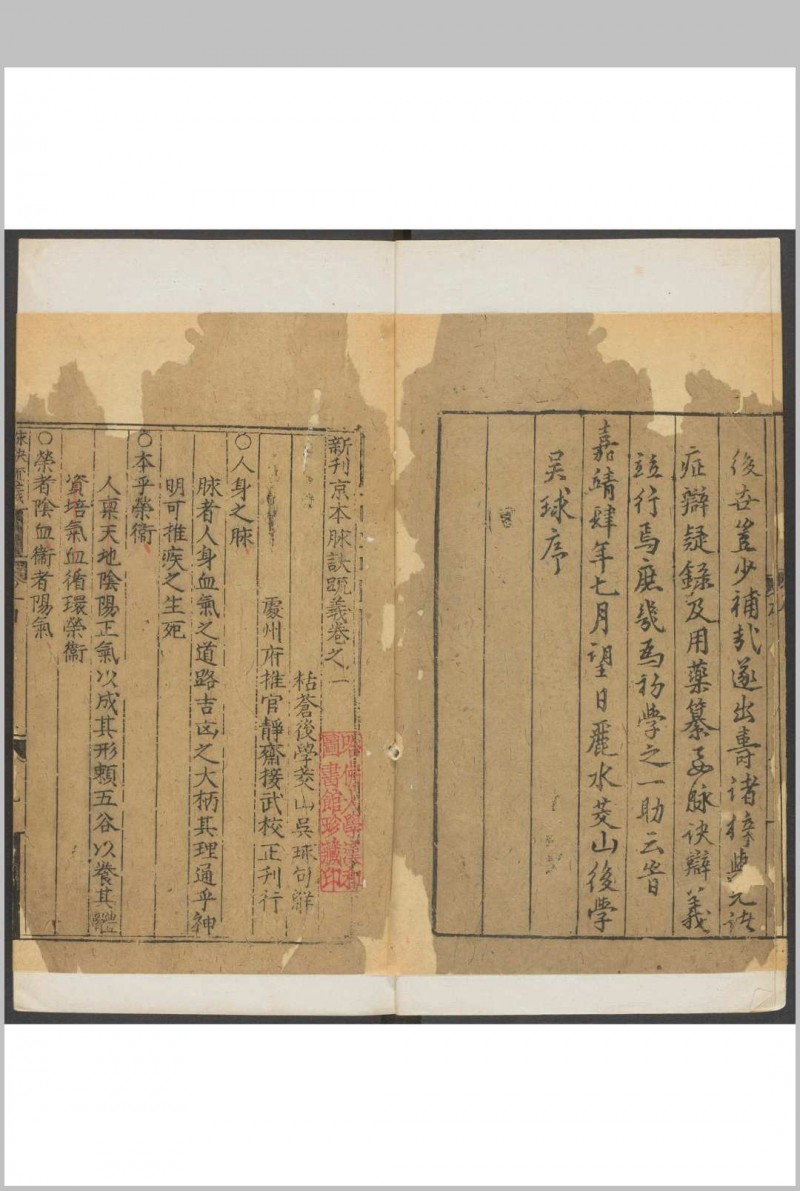 後世豈少補哉遂出壽諸梓與先諸
症辯疑錄及用藥纂要脉诀辯義
竝行焉庶幾爲初學之一助云旹
嘉靖肆年七月望日麗水茭山後學
吳球序
新刊京本脉訣疏義卷之一
粘蒼後學茭山吳球句解
處州府推官靜齋接武校正刊行
哈佛大學漢和
圖書館珍藏印
〇人身之脉
脉者人身血氣之道路吉凶之大柄其理通乎神
明可推疾之生死
〇本乎榮衞
人禀天地陰陽正氣以成其形頼五谷以養其體
資培氣血循環榮衞
〇榮者陰血衞者陽氣